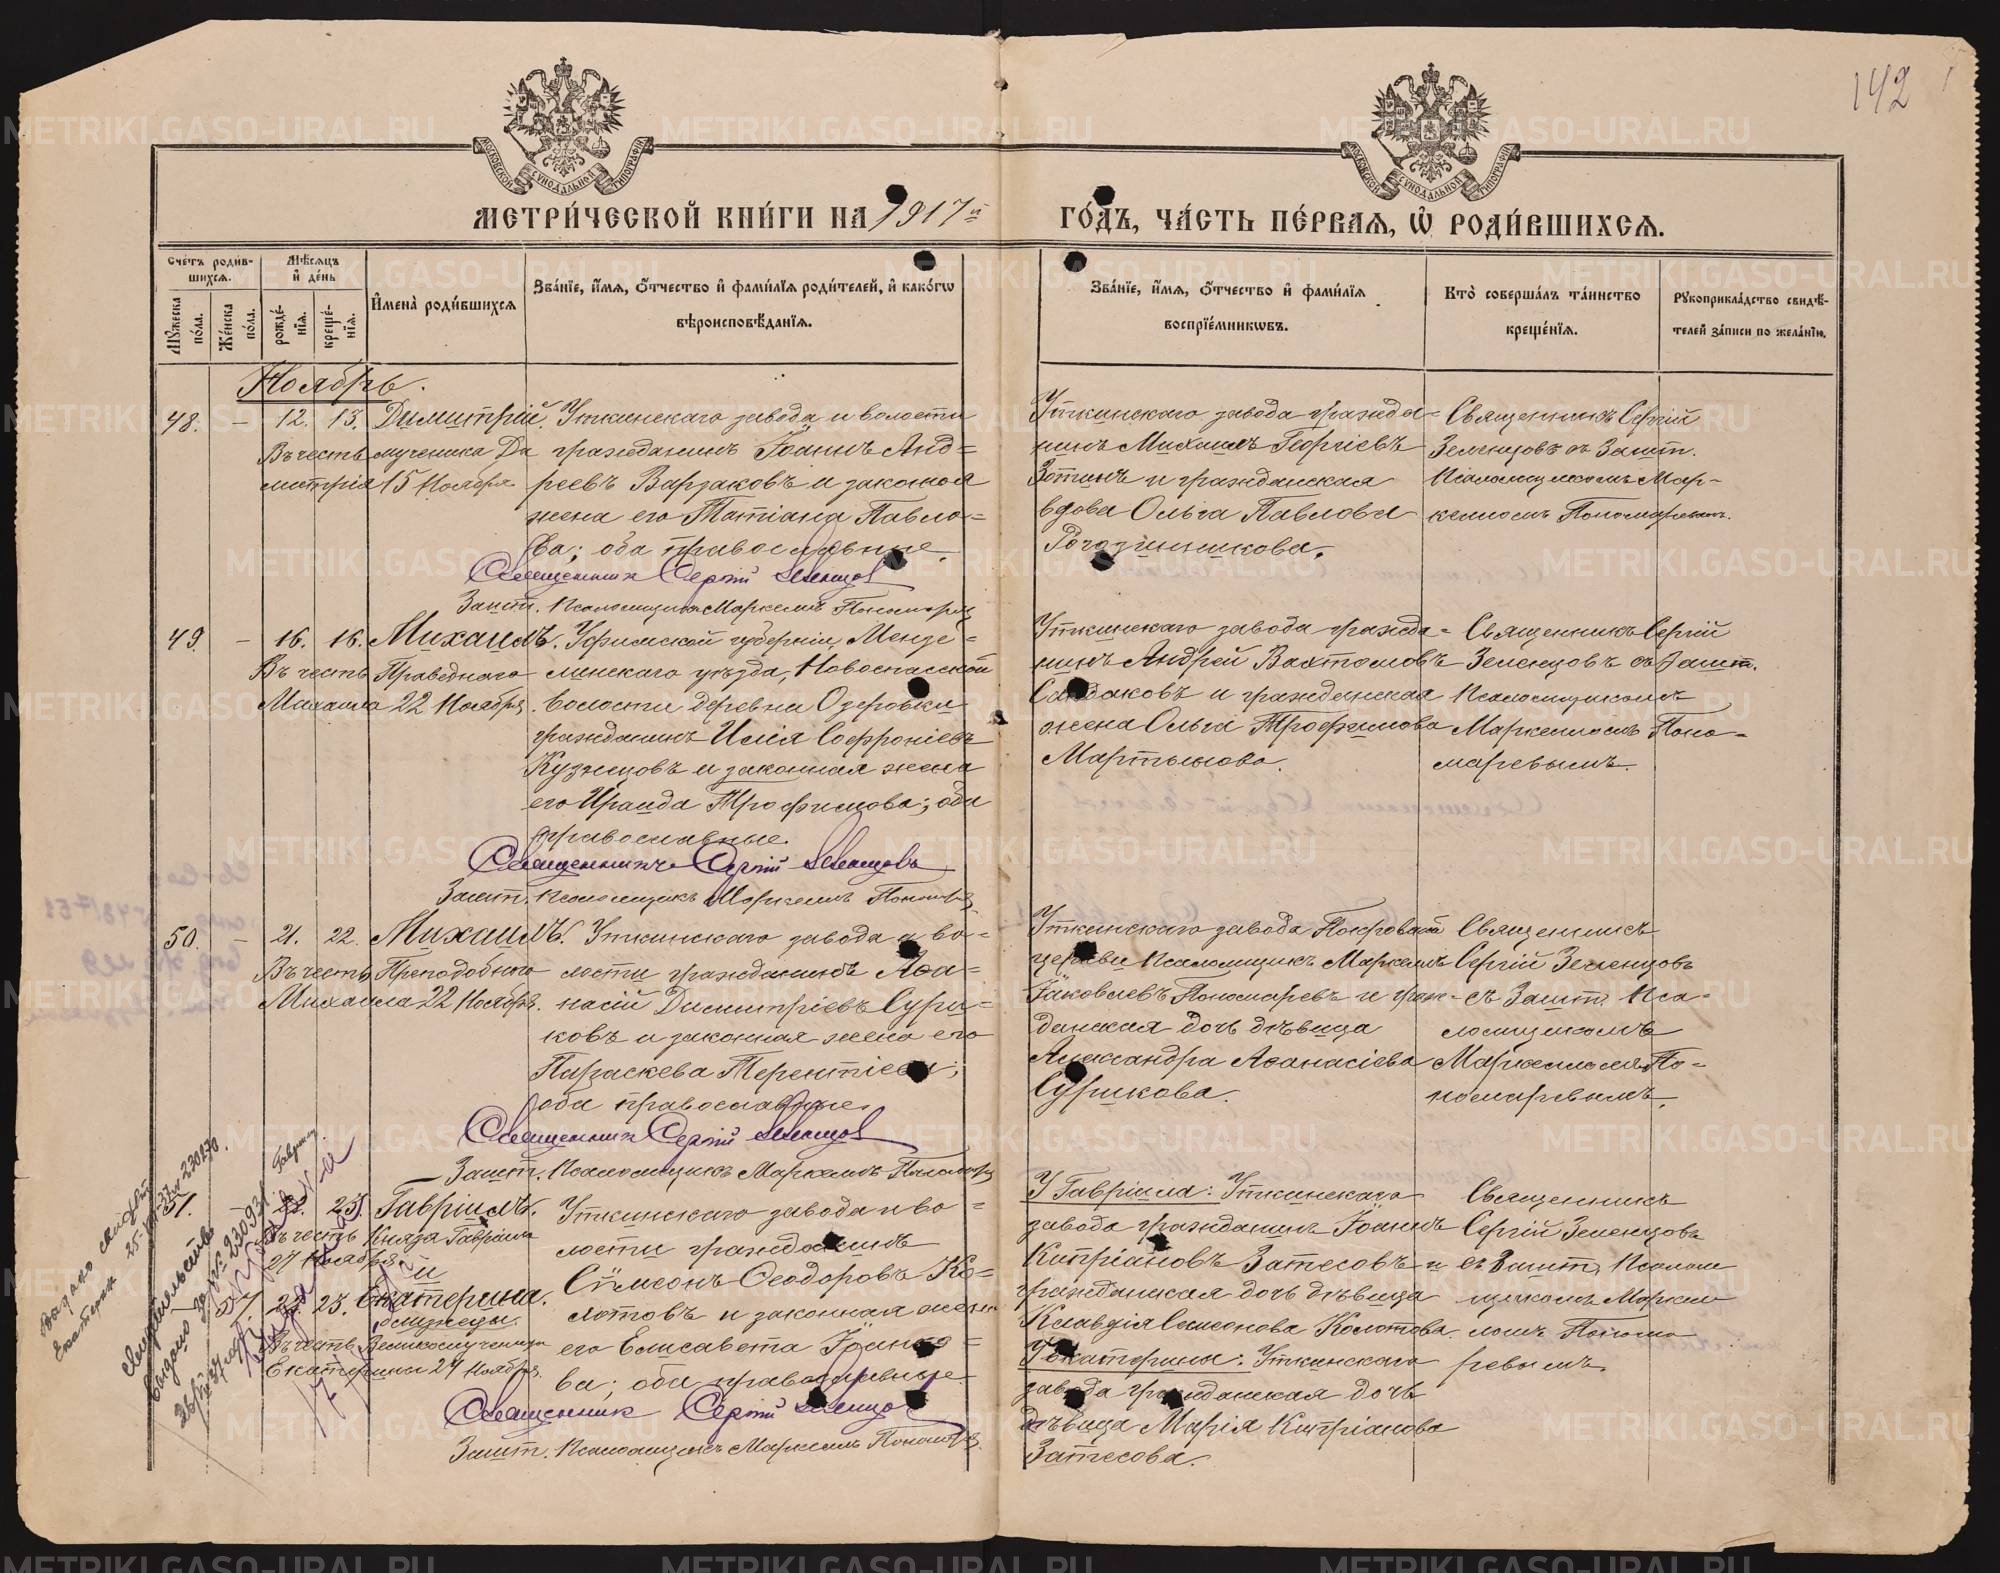 142
МОСКОВСКОЙ СѴНОДАЛЬНОЙ ТИПОГРАФІИ
МОСКОВСКОЙ СѴНОДАЛЬНОЙ ТИПОГРАФІИ
МЕТРИ́ЧЕСКОЙ КНИ́ГИ НА 1917й ГО́ДЪ, ЧА́СТЬ ПЕ́РВАЯ, Ѡ РОДИ́ВШИХСЯ.
Счетъ роди́вшихся.
Му́жеска по́ла.
Же́нска по́ла.
Мѣсяцъ и де́нь
рожде́нія.
креще́нія.
Имена̀ роди́вшихся
Зва́ніе, и́мя, о́тчество и фами́лія роди́телей, и како́гѡ
вѣроисповѣ́данія.
Зва́ніе, и́мя, о́тчество и фами́лія
воспріе́мникѡвъ.
Кто̀ соверша́лъ та́инство
креще́нія.
Рукоприкла́дство свидѣ́-
телей за́писи по жела́нію.
Ноябрь.
48. – 12. 13. Димитрій.
Въ честь мученика Ди
митрія 15 Ноября
Уткинскаго завода и волости
гражданинъ Іоаннъ Анд=
реевъ Варзаковъ и законная
жена его Татіана Павло=
ва; оба православные.
Священник Сергій Зеленцов
Зашт. Псаломщикъ Маркеллъ Пономарев
Уткинскаго завода гражда=
нинъ Михаилъ Георгіевъ
Зотинъ и гражданская
вдова Ольга Павлова
Рогозинникова.
Священникъ Сергій
Зеленцовъ съ Зашт.
Псаломщикомъ Мар-
келломъ Пономаревым.
49. – 16. 16. Михаилъ.
Въ честь Праведнаго
Михаила 22 Ноября.
Уфимской губерніи, Мензе=
линскаго уѣзда, Новоспасской
волости деревни Озеровки
гражданинъ Илія Софроніевъ
Кузнецовъ и законная жена
его Ираида Трофимова; оба
православные.
Священникъ Сергій Зеленцовъ
Зашт. Псаломщикъ Маркеллъ Пономарев
Уткинскаго завода гражда=
нинъ Андрей Вахтомовъ
Садаковъ и гражданская
жена Ольга Трофимова
Мартынова.
Священникъ Сергій
Зеленцовъ съ Зашт.
Псаломщикомъ
Маркелломъ Поно=
маревымъ.
50. – 21. 22. Михаилъ.
Въ честь Преподобнаго
Михаила 22 Ноября.
Уткинскаго завода и во=
лости гражданинъ Аѳа=
насій Димитріевъ Сури=
ковъ и законная жена его
Параскева Терентіева;
оба православные.
Священник Сергій Зеленцов
Зашт. Псаломщикъ Маркеллъ Пономарев
Уткинскаго завода Покровской
церкви Псаломщикъ Маркеллъ
Іаковлевъ Пономаревъ и граж=
данская дочь дѣвица
Александра Аѳанасіева
Сурикова.
Священникъ
Сергій Зеленцовъ
съ Зашт. Пса=
ломщикомъ
Маркелломъ По=
номаревымъ.
51. – 22. 23. Гавріилъ.
Въ честь Князя Гавріила
27 Ноября
и
51. 22. 23. Екатерина.
близнецы.
Въ честь Великомученицы
Екатерины 24 Ноября.
Уткинскаго завода и во=
лости гражданинъ
Симеонъ Ѳеодоровъ Ко=
лотовъ и законная жена
его Елисавета Іоанно=
ва; оба православные.
Священник Сергій Зеленцов
Зашт. Псаломщикъ Маркеллъ Пономарев
У Гавріила: Уткинскаго
завода гражданинъ Іоаннъ
Кипріановъ Затесовъ и
гражданская дочь дѣвица
Клавдія Симеонова Колотова.
У Екатерины: Уткинскаго
завода гражданская дочь
дѣвица Марія Кипріанова
Затесова.
Священникъ
Сергій Зеленцовъ
съ Зашт. Псалом
щикомъ Маркел
ломъ Понома
ревымъ.
Выдано
Екатерин
230170.
Гавриил
свидетельство
выдано
230931